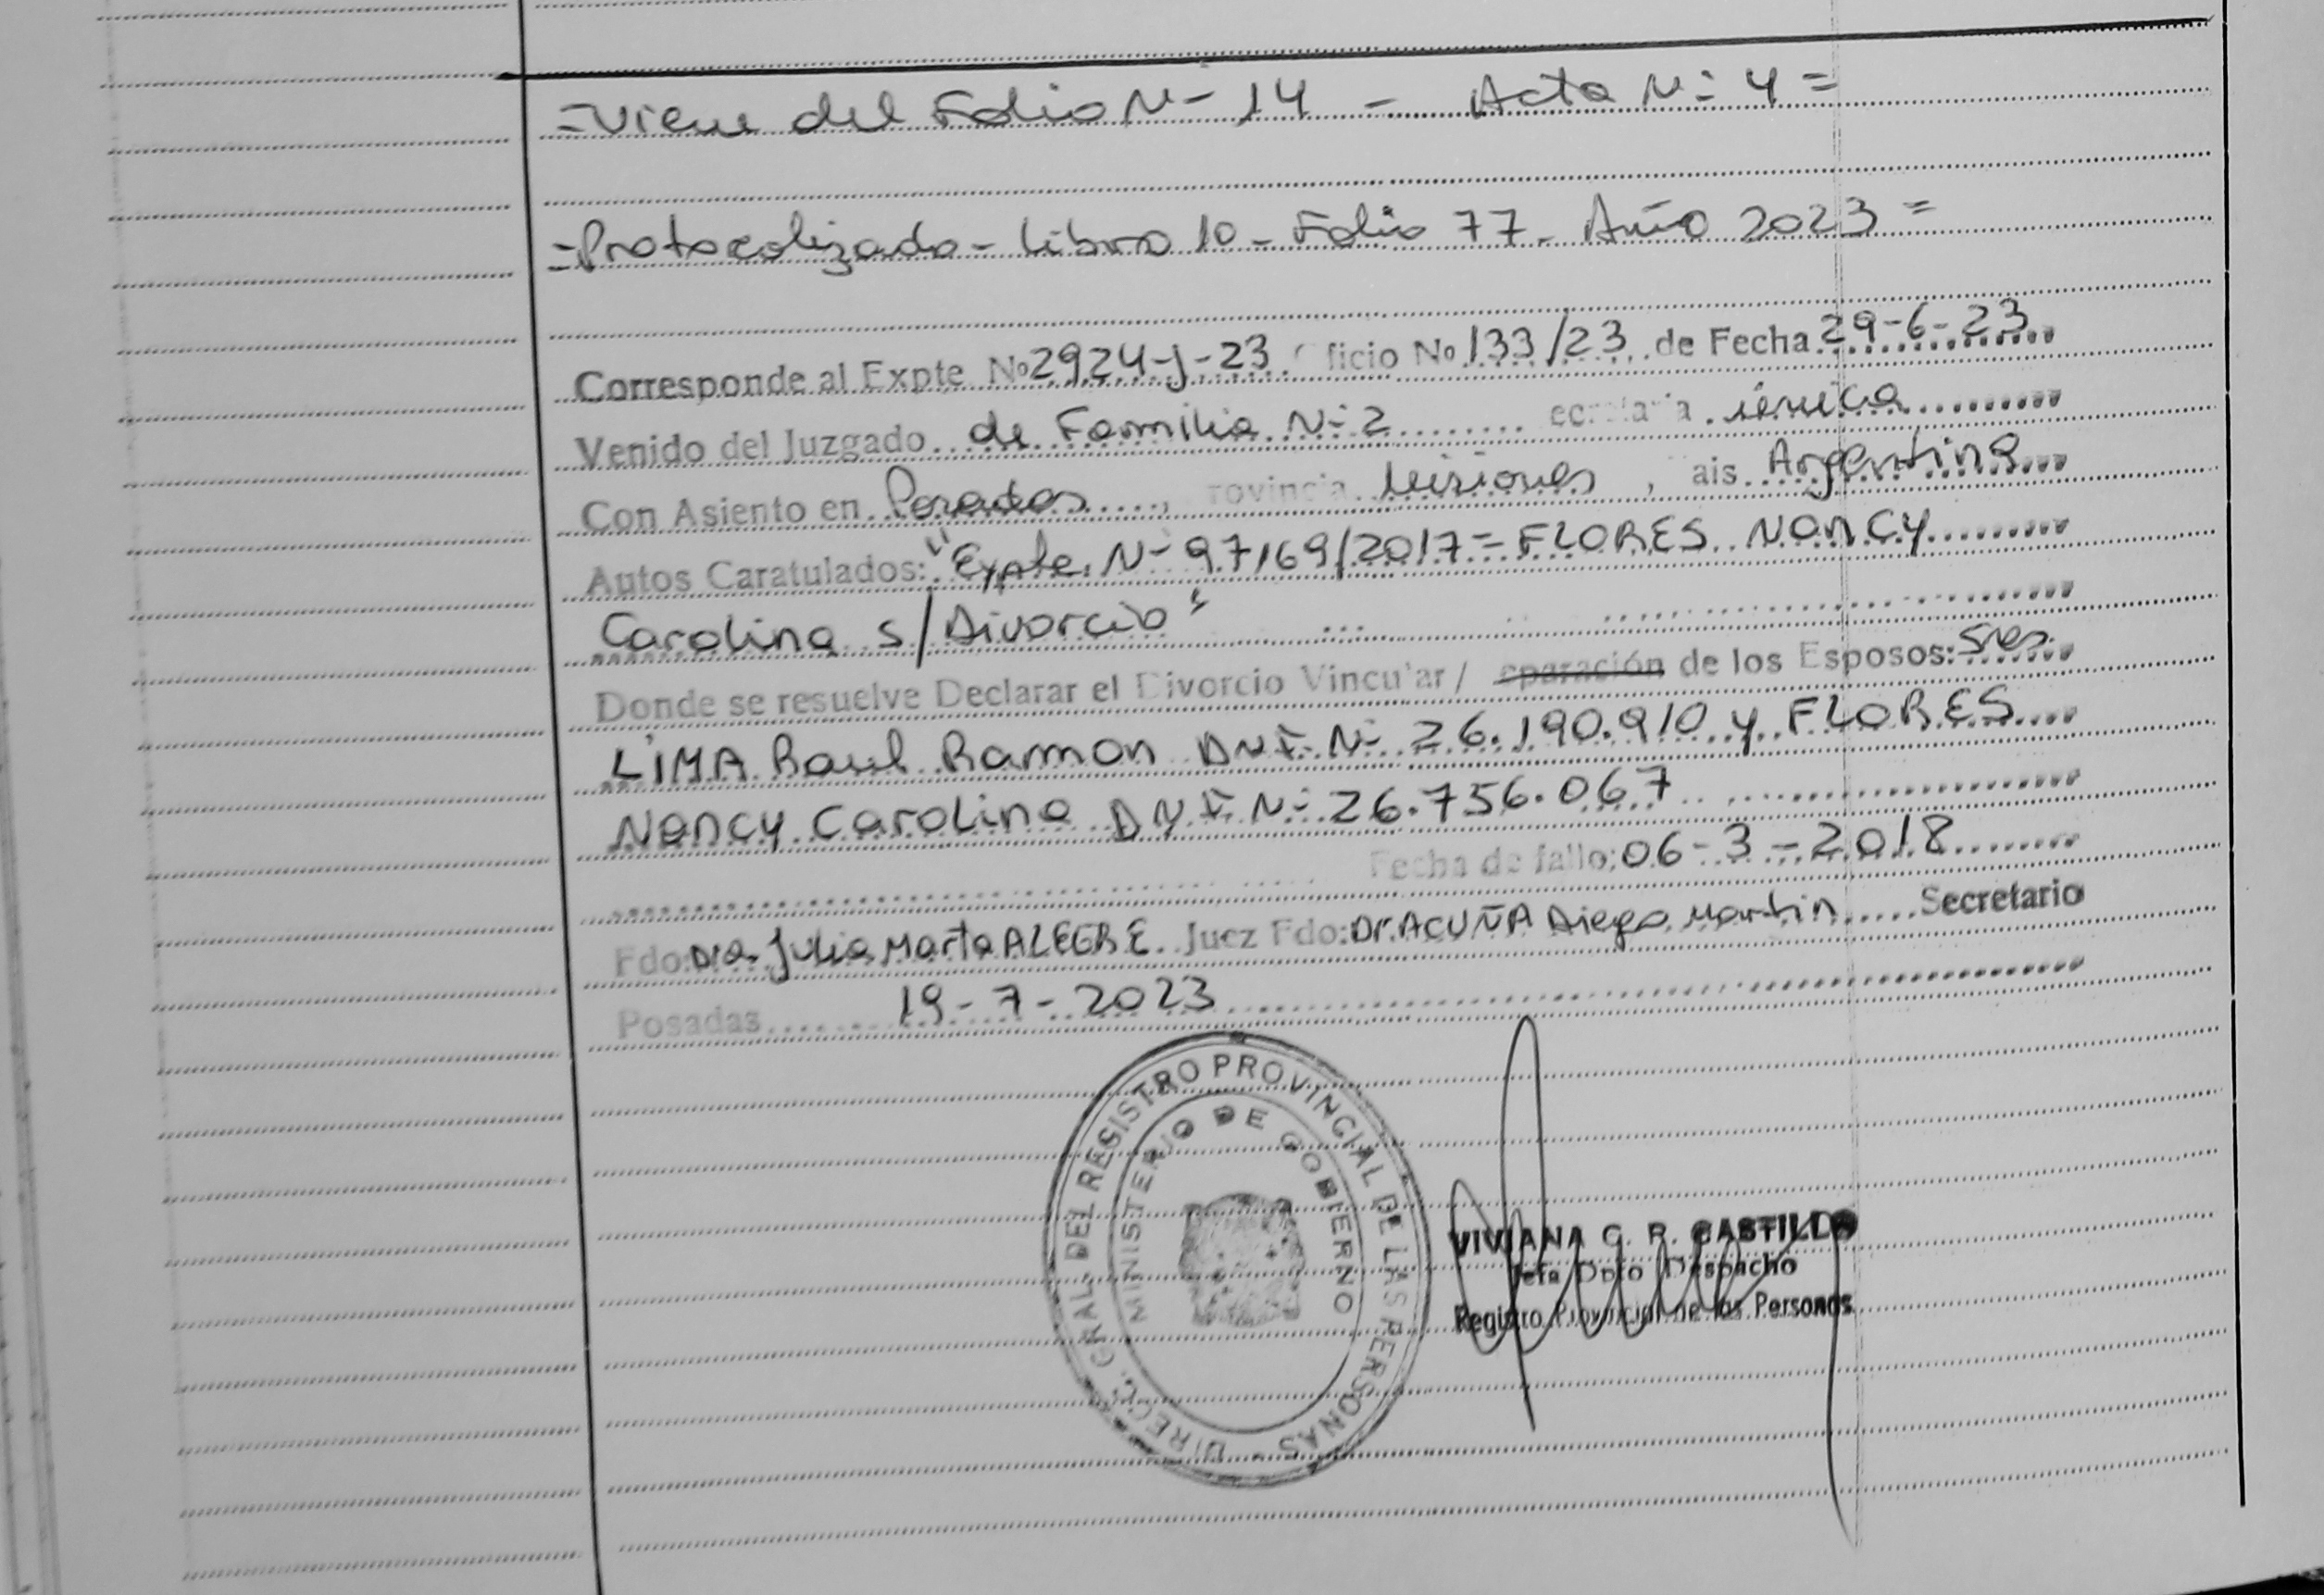 =Viene del Folio Nº 14 - Acta Nº 4=
=Protocolizado - Libro 10 - Folio 77 - Año 2023=
Corresponde al Expte Nº 2924-J-23 ficio Nº 133/23 de Fecha 29-6-23
Venido del Juzgado de Familia Nº 2 ecretaria única
Con Asiento en Posadas, rovincia Misiones, ais Argentina
Autos Caratulados: "Expte. Nº 97169/2017=FLORES Nancy
Carolina s/Divorcio"
Donde se resuelve Declarar el Divorcio Vincular/ eparación de los Esposos: Sres.
LIMA Raul Ramon DNI Nº 26.190.910 y FLORES
Nancy Carolina DNI Nº 26.756.067
Fecha de fallo: 06-3-2018
Fdo: Dra. Julia Marta ALEGRE. Juez Fdo: Dr. ACUÑA Diego Martin Secretario
Posadas 19-7-2023
DIRECC. GRAL. DEL REGISTRO PROVINCIAL DE LAS PERSONAS
MINISTERIO DE GOBIERNO
VIVIANA G. R. CASTILLO
Jefa Dpto Despacho
Registro Provincial de las Personas